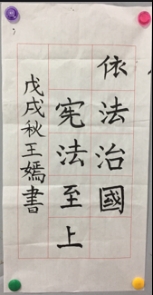 依法治國
宪法至上
戊戌秋王嫣書